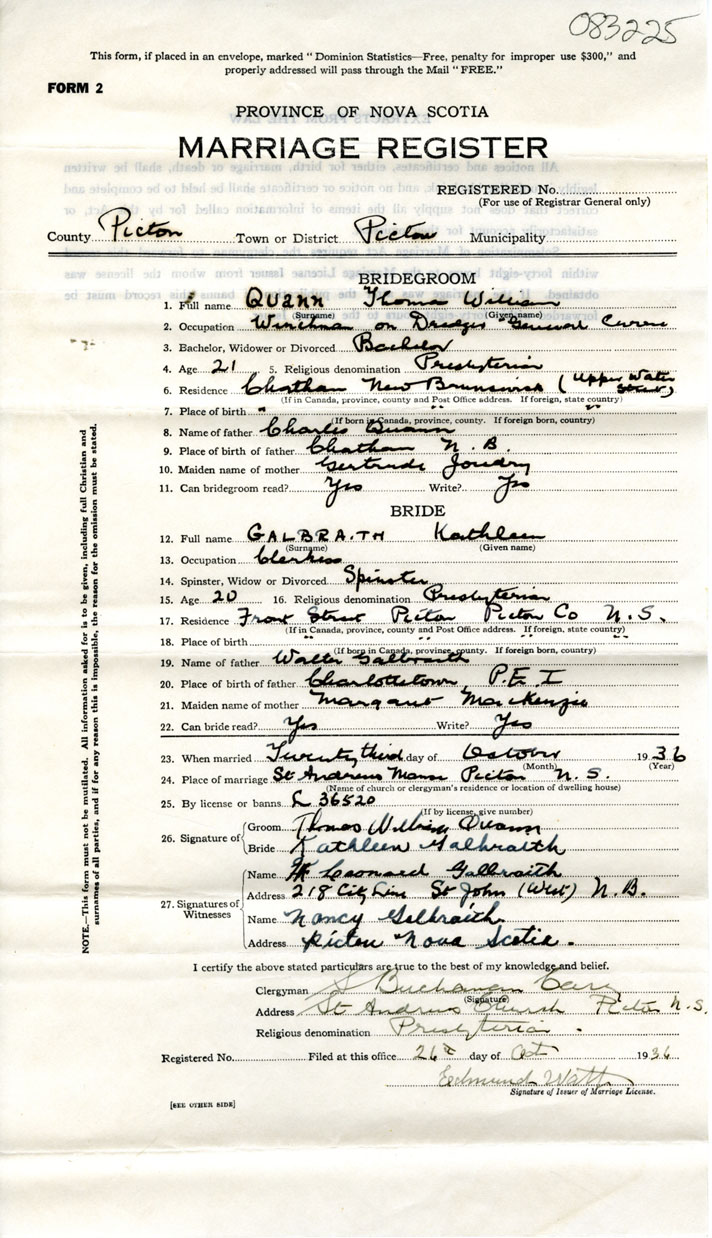 083225
This form, if placed in an envelope, marked “Dominion Statistics—Free, penalty for improper use $300,” and
properly addressed will pass through the Mail “FREE.”
FORM 2
PROVINCE OF NOVA SCOTIA
MARRIAGE REGISTER
REGISTERED No.
(For use of Registrar General only)
County Pictou Town or District Pictou Municipality
BRIDEGROOM
1. Full name QUANN Thomas William
(Surname) (Given name)
2. Occupation Winchman on Dredges General
3. Bachelor, Widower or Divorced Bachelor
4. Age 21 5. Religious denomination Presbyterian
6. Residence Chatham New Brunswick (Upper Water Street)
(If in Canada, province, county and Post Office address. If foreign, state country)
7. Place of birth " " "
(If born in Canada, province, county. If foreign born, country)
8. Name of father Charles Quann
9. Place of birth of father Chatham N. B.
10. Maiden name of mother Gertrude Joudry
11. Can bridegroom read? Yes Write? Yes
BRIDE
12. Full name GALBRAITH Kathleen
(Surname) (Given name)
13. Occupation Clerkess
14. Spinster, Widow or Divorced Spinster
15. Age 20 16. Religious denomination Presbyterian
17. Residence Front Street Pictou Pictou Co N. S.
(If in Canada, province, county and Post Office address. If foreign, state country)
18. Place of birth " " " "
(If born in Canada, province, county. If foreign born, country)
19. Name of father Walter Galbraith
20. Place of birth of father Charlottetown, P. E. I
21. Maiden name of mother Margaret MacKenzie
22. Can bride read? Yes Write? Yes
23. When married Twenty third day of October 1936
(Month) (Year)
24. Place of marriage St Andrews Manse Pictou N. S.
(Name of church or clergyman's residence or location of dwelling house)
25. By license or banns L 36520
(If by license, give number)
26. Signature of
Groom Thomas William Quann
Bride Kathleen Galbraith
27. Signatures of Witnesses
Name Leonard Galbraith
Address 218 City Line St John (West) N. B.
Name Nancy Galbraith
Address Pictou Nova Scotia.
I certify the above stated particulars are true to the best of my knowledge and belief.
Clergyman Buchanan
(Signature)
Address St Andrews Church Pictou N. S.
Religious denomination Presbyterian.
Registered No. Filed at this office 26th day of Oct 1936
Edmund Watt
Signature of Issuer of Marriage License.
[SEE OTHER SIDE]
NOTE.—This form must not be mutilated. All information asked for is to be given, including full Christian and
surnames of all parties, and if for any reason this is impossible, the reason for the omission must be stated.